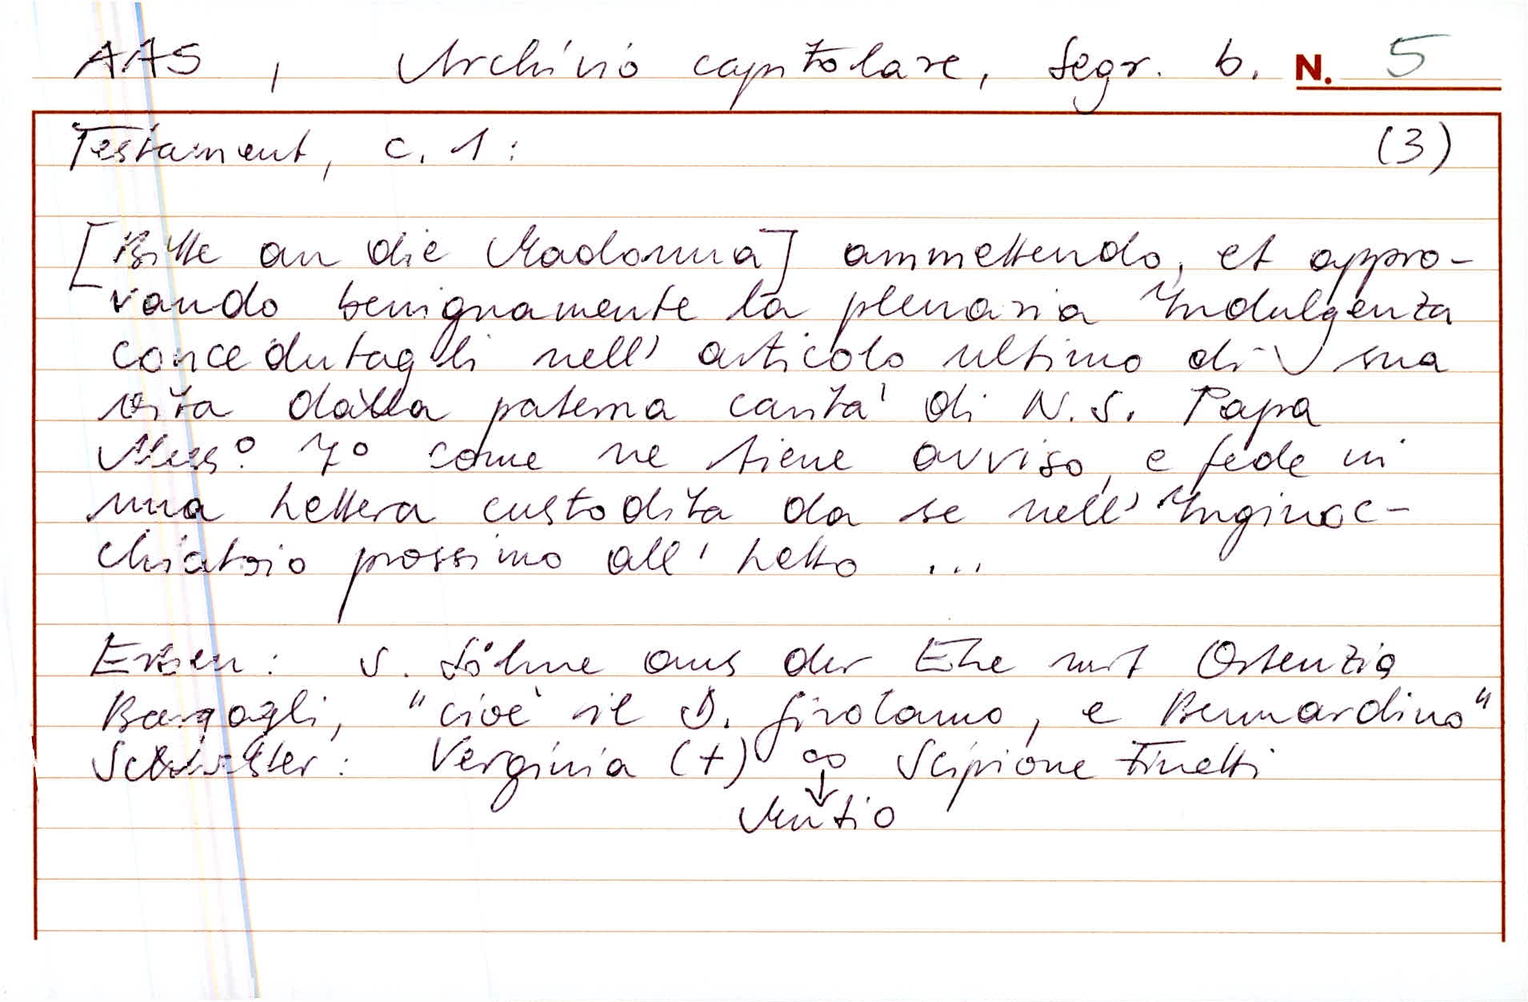 AAS, Archivio capitolare, Segr. b. N. 5
Testament, c. 1: (3)
[Bitte an die Madonna] ammettendo, et appro-
vando benignamente la plenaria Indulgenza
concedutagli nell' articolo ultimo di sua
vita dalla paterna carità di N. S. Papa
Aless.º 7º come ne tiene avviso, e fede in
una Lettera custodita da se nell' Inginoc-
chiatoio prossimo all' Letto ...
Erben: s. Söhne aus der Ehe mit Ortenzia
Bargagli, "cioè il S. Girolamo, e Bernardino"
Schwester: Verginia (+) ∞ Scipione Finetti
↓
Mutio